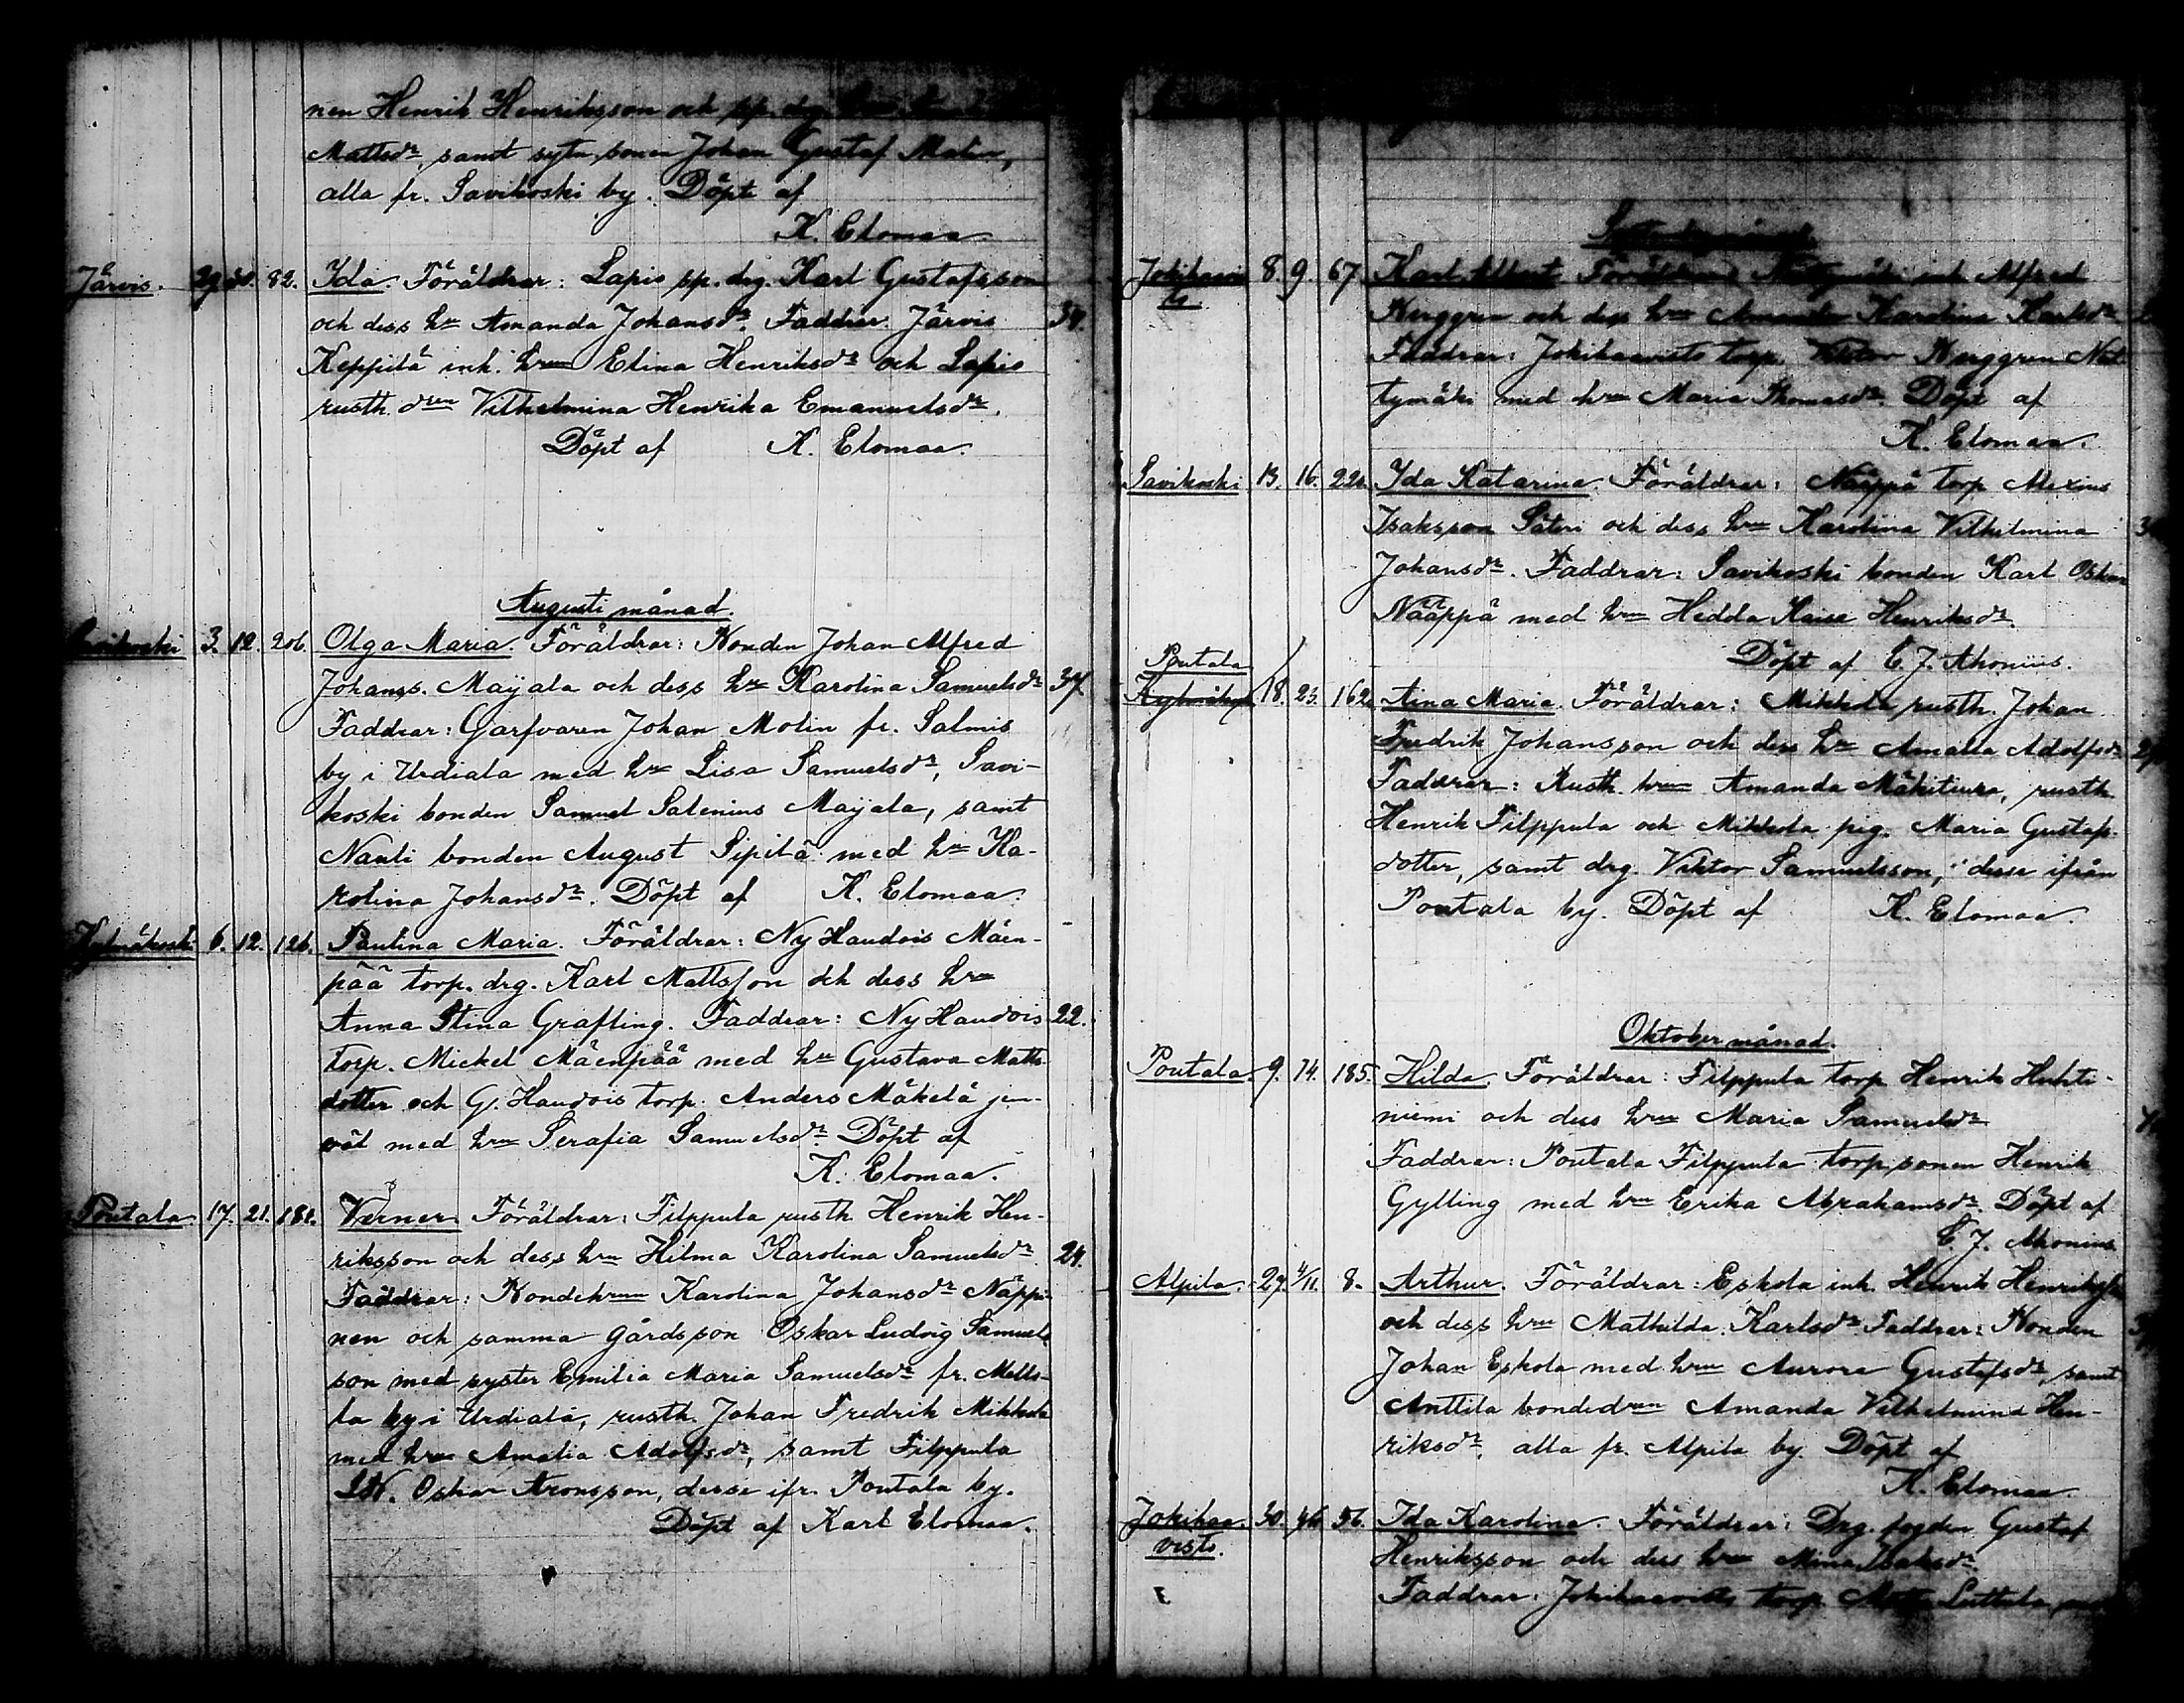 nen Henrik Henriksson och sp. drg.
Mattsdr, samt sytn. sonen Johan Gustaf Malin,
alla fr. Savikoski by. Döpt af
K. Elomaa.
Järvis. 29. 30. 82. Ida. Föräldrar: Lapis sp. drg. Karl Gustafsson
och dess hru Amanda Johansdr. Faddrar. Järvis 34.
Keppilä inh. hrun Elina Henriksdr och Lapis
rusth. dren Vilhelmina Henrika Emanuelsdr.
Döpt af K. Elomaa.
Augusti månad.
Savikoski 3. 12. 206. Olga Maria. Föräldrar: Bonden Johan Alfred
Johanss. Maijala och dess hru Karolina Samuelsdr 37.
Faddrar: Garfvaren Johan Molin fr. Salmis
by i Urdiala med hru Lisa Samuelsdr, Savi-
koski bonden Samuel Salenius Maijala, samt
Nauli bonden August Sipilä med hru Ka-
rolina Johansdr. Döpt af K. Elomaa.
Kylmäkoski 6. 12. 126. Paulina Maria. Föräldrar: Ny Haudois Mäen-
pää torp. drg. Karl Mattsson och dess hru
Anna Stina Grafting. Faddrar: Ny Haudois 22.
torp. Mickel Mäenpää med hru Gustava Matts-
dotter och G. Haudois torp. Anders Mäkelä jem-
väl med hru Serafia Samuelsdr. Döpt af
K. Elomaa.
Poutala 17. 21. 181. Verner. Föräldrar: Filppula rusth. Henrik Hen-
riksson och dess hru Hilma Karolina Samuelsdr 24.
Faddrar: Bondehrun Karolina Johansdr Näppi-
nen och samma gårds son Oskar Ludvig Samuels-
son med syster Emilia Maria Samuelsdr fr. Mello-
la by i Urdiala, rusth. Johan Fredrik Mikkola
med hru Amalia Adolfsdr, samt Filppula
Oskar Aronsson, desse ifr. Poutala by.
Döpt af Karl Elomaa.
Septembermånad.
Jokihavis 8. 9. 67. Karl Albert. Föräldrar: inh. Alfred
ts Berggren och dess hru Amanda Karolina Karlsdr.
Faddrar: Jokihaavisto torp. Viktor Berggren Nät-
tymäki med hru Maria Thomasdr. Döpt af
K. Elomaa.
Savikoski 13. 16. 220. Ida Katarina. Föräldrar: Nääppä torp. Alexius
Isaksson Säteri och dess hru Karolina Vilhelmina
Johansdr. Faddrar: Savikoski bonden Karl Oskar
Nääppä med hru Hedda Kaisa Henriksdr.
Döpt af E. J. Ahonius.
Poutala
Kylmäkoski 18. 23. 162. Aina Maria. Föräldrar: Mikkola rusth. Johan
Fredrik Johansson och dess hru Amalia Adolfsdr.
Faddrar: Rusth. hrun Amanda Mäkitiura, rusth.
Henrik Filppula och Mikkola pig. Maria Gustafs-
dotter, samt drg. Viktor Samuelsson, desse ifrån
Poutala by. Döpt af K. Elomaa.
Oktober månad.
Poutala. 9. 14. 185. Hilda. Föräldrar: Filppula torp. Henrik Huhti-
niemi och dess hru Maria Samuelsdr
Faddrar: Poutala Filppula torp. sonen Henrik
Gylling med hru Erika Abrahamsdr. Döpt af
E. J. Ahonius.
Alpila. 27. 4/11. 8. Arthur. Föräldrar: Eskola inh. Henrik Henriksson
och dess hru Mathilda Karlsdr. Faddrar: Bonden
Johan Eskola med hru Aurora Gustafsdr, samt
Anttila bondedren Amanda Vilhelmina Hen-
riksdr, alla fr. Alpila by. Döpt af
K. Elomaa.
Jokihaa- 30. 56. Ida Karolina. Föräldrar: Drg. fogden Gustaf
visto. Henriksson och dess hru Mina Isaksdr
Faddrar: Jokihaavisto torp. Matts Luttula